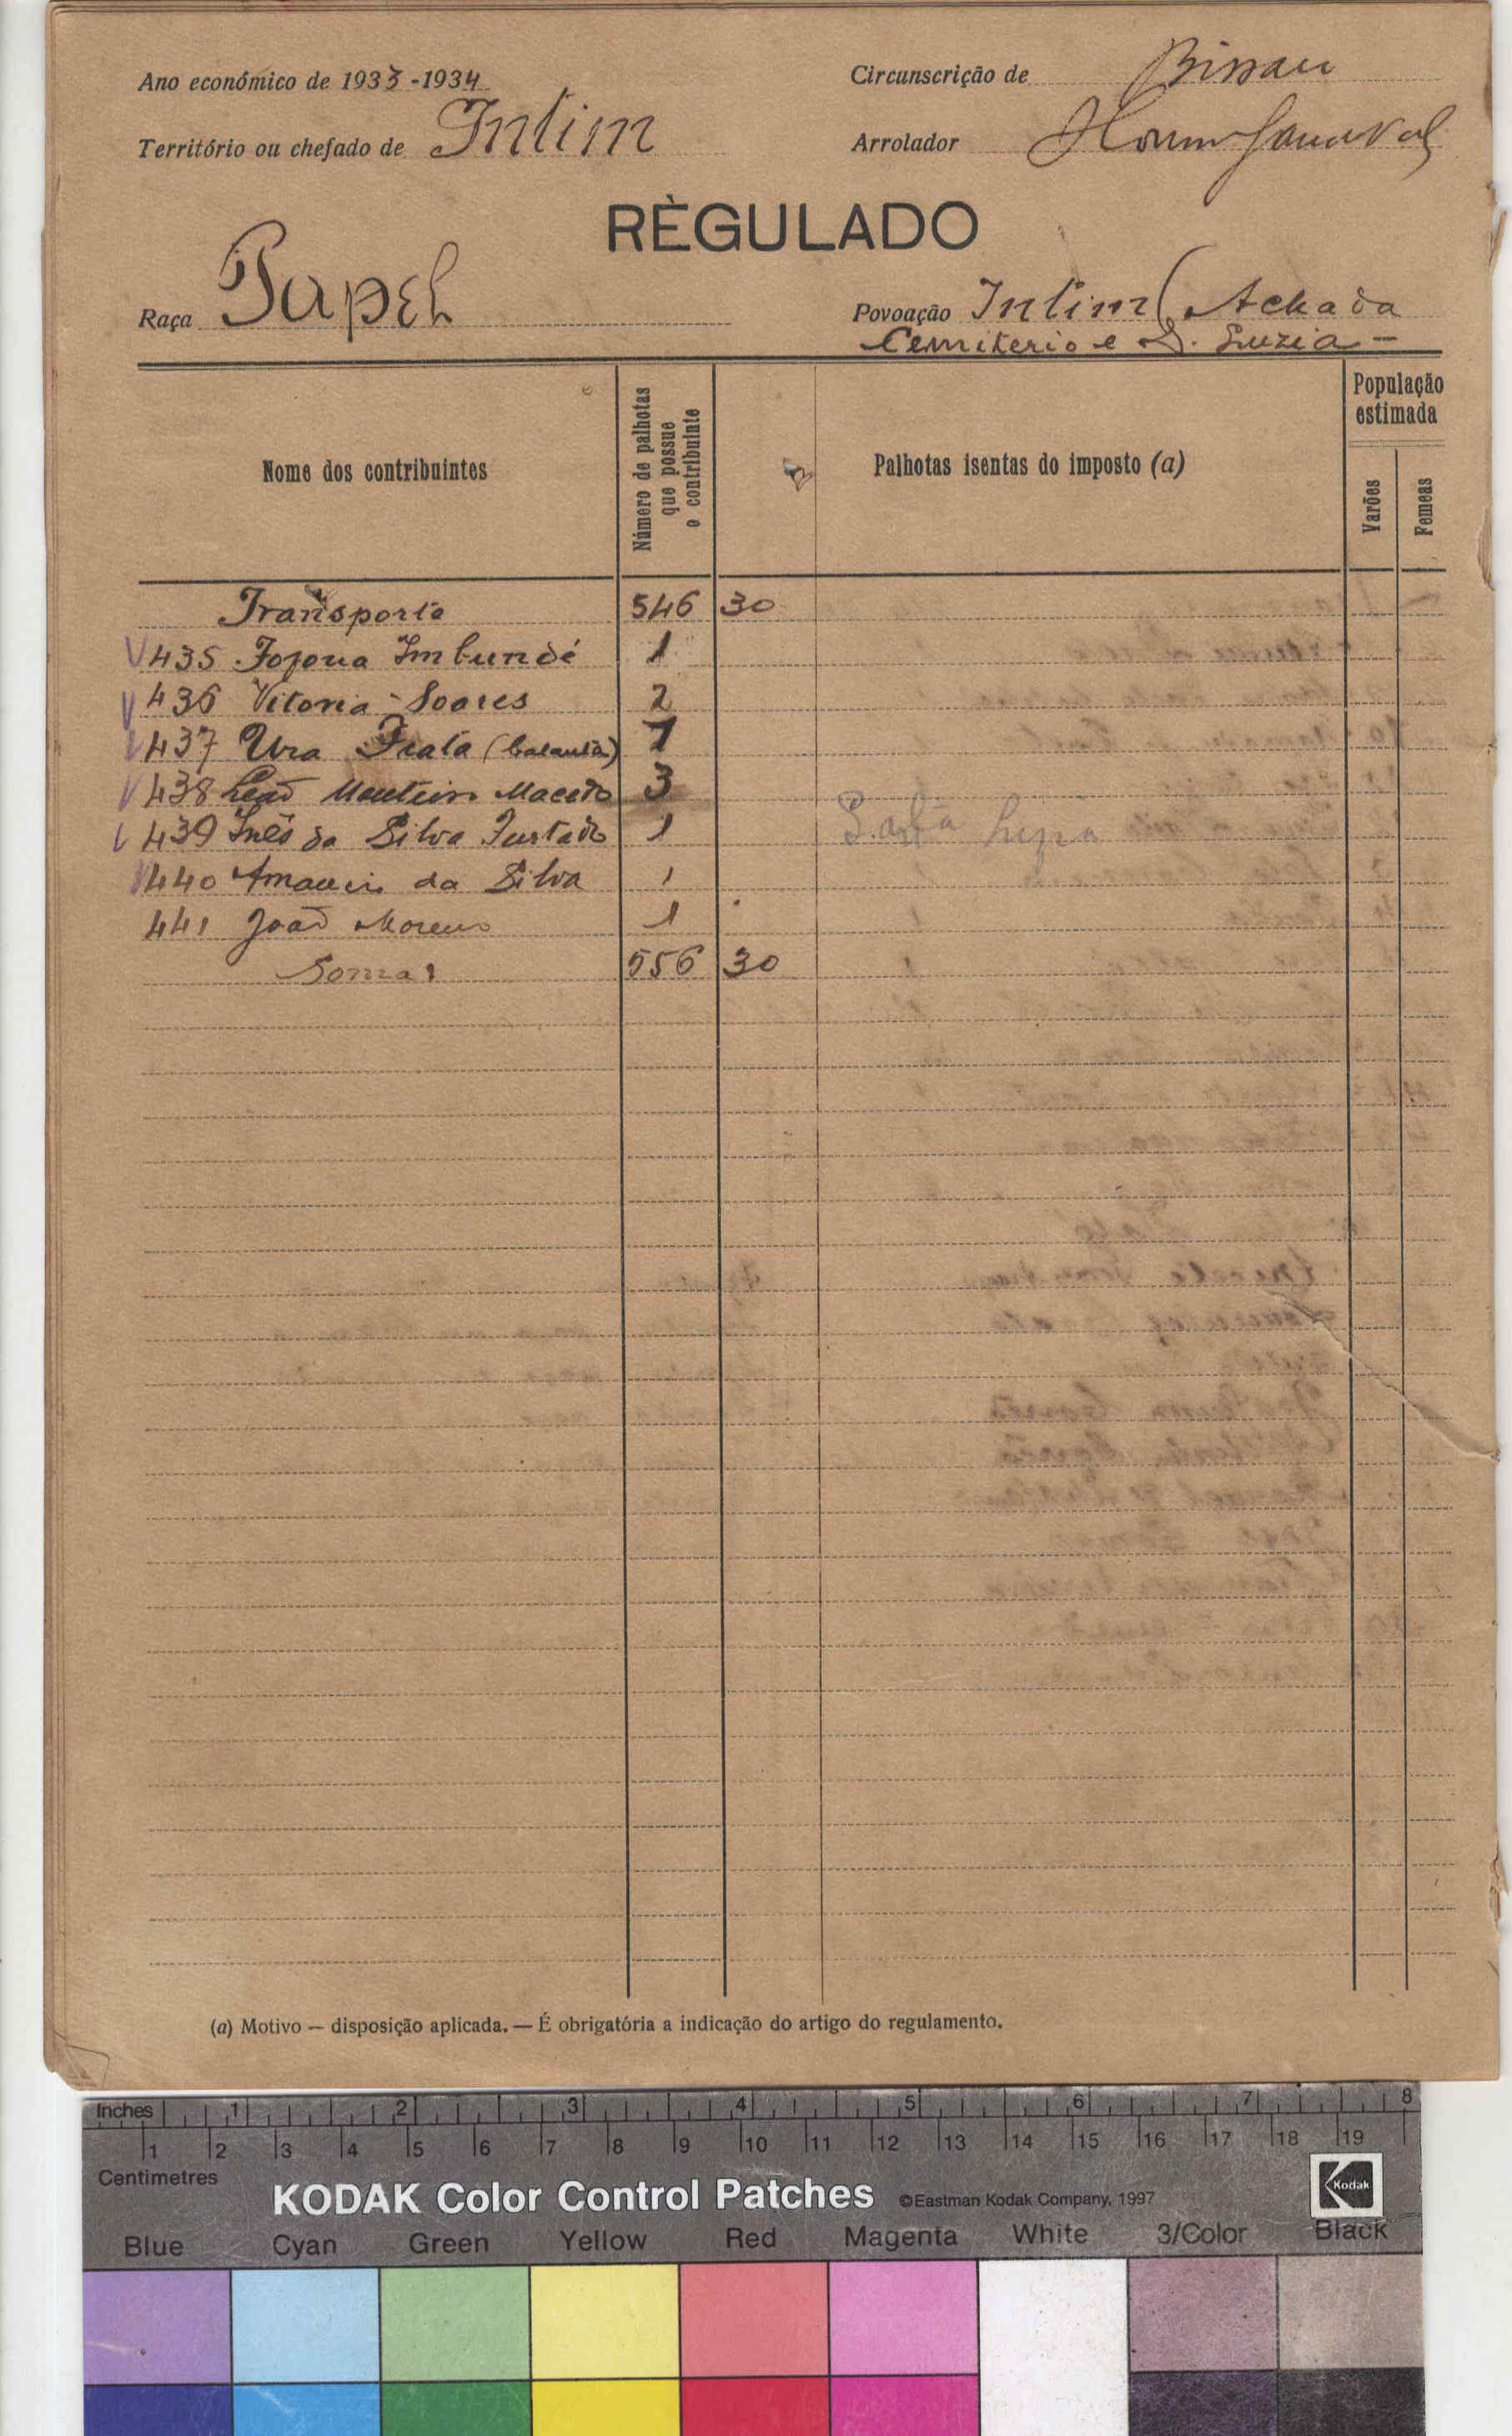 Ano económico de 1933-1934
Circunscrição de Bissau
Território ou chefado de Intim
Arrolador
RÈGULADO
Raça Papel
Povoação Intim (Achada
Cemiterio e S. Luzia -
Nome dos contribuintes
Número de palhotas que possue o contribuinte
Palhotas isentas do imposto (a)
População estimada
Varões
Femeas
Transporte 546 30
435 Imbundé 1
436 Vitoria Soares 2
437 Ura 1
438 Monteiro Macedo 3
439 Inês da Silva Furtado 1 Santa Luzia
440 da Silva 1
441 João Moreno 1
Soma 556 30
(a) Motivo — disposição aplicada. — É obrigatória a indicação do artigo do regulamento.
Inches 1 2 3 4 5 6 7 8
1 2 3 4 5 6 7 8 9 10 11 12 13 14 15 16 17 18 19
Centimetres
KODAK Color Control Patches ©Eastman Kodak Company, 1997 Kodak
Blue Cyan Green Yellow Red Magenta White 3/Color Black